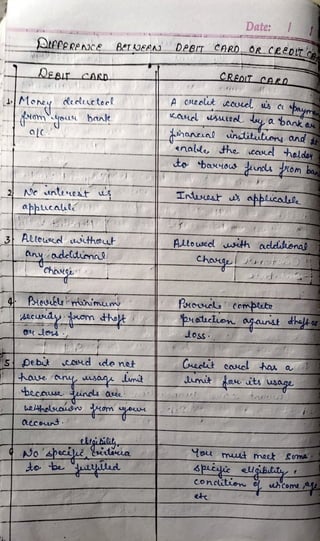 Date: / /
DIFFERENCE BETWEEN DEBIT CARD OR CREDIT
DEBIT CARD
CREDIT CARD
1. Money deducted
from your bank
a/c.
A credit card is a
card issued by a bank or
financial institutions and
enable the card holder
to borrow funds from
2 No interest is
applicable
Interest is applicable
3 Allowed without
any additional
charge
Allowed with additional
charge
4 Provide minimum
security from theft
or loss.
Provide complete
protection against theft or
loss.
5 Debit card do not
have any usage limit
because funds are
withdrawn from your
account.
Credit card has a
limit for its usage
6 No specific eligibility criteria
to be fulfilled
You must meet some
specific eligibility,
condition of income, age
etc